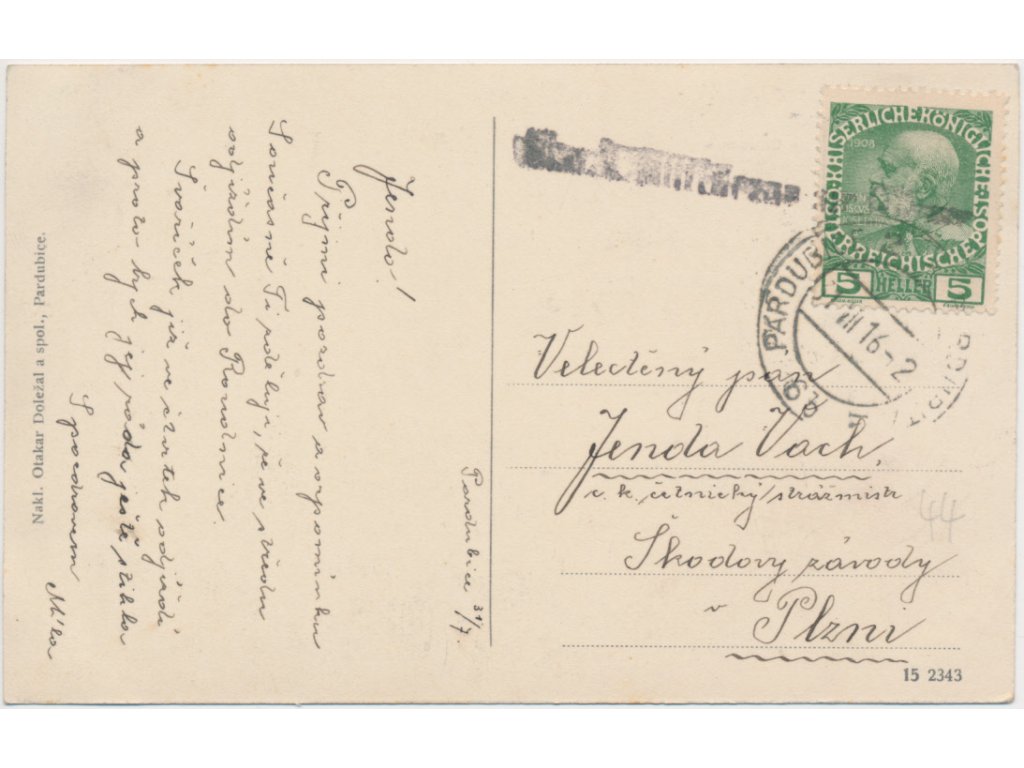 Nakl. Otakar Doležal a spol., Pardubice.
Pardubice 31/7.
Jendo!
Přijmi pozdrav a vzpomínku
Současně Ti sděluji, že ve středu
odjíždím do Roudnice.
Švařiček již ve čtvrtek odjíždí
a proto bych jej ráda ještě stihla
S pozdravem
Míla
KAISERLICHE KÖNIGLICHE
ÖSTERREICHISCHE POST
1908
5 HELLER 5
PARDUBI
VIII 16-2
Velectěný pan
Jenda Vach,
c. k. četnický strážmistr
Škodovy závody
v
Plzni
44
15 2343